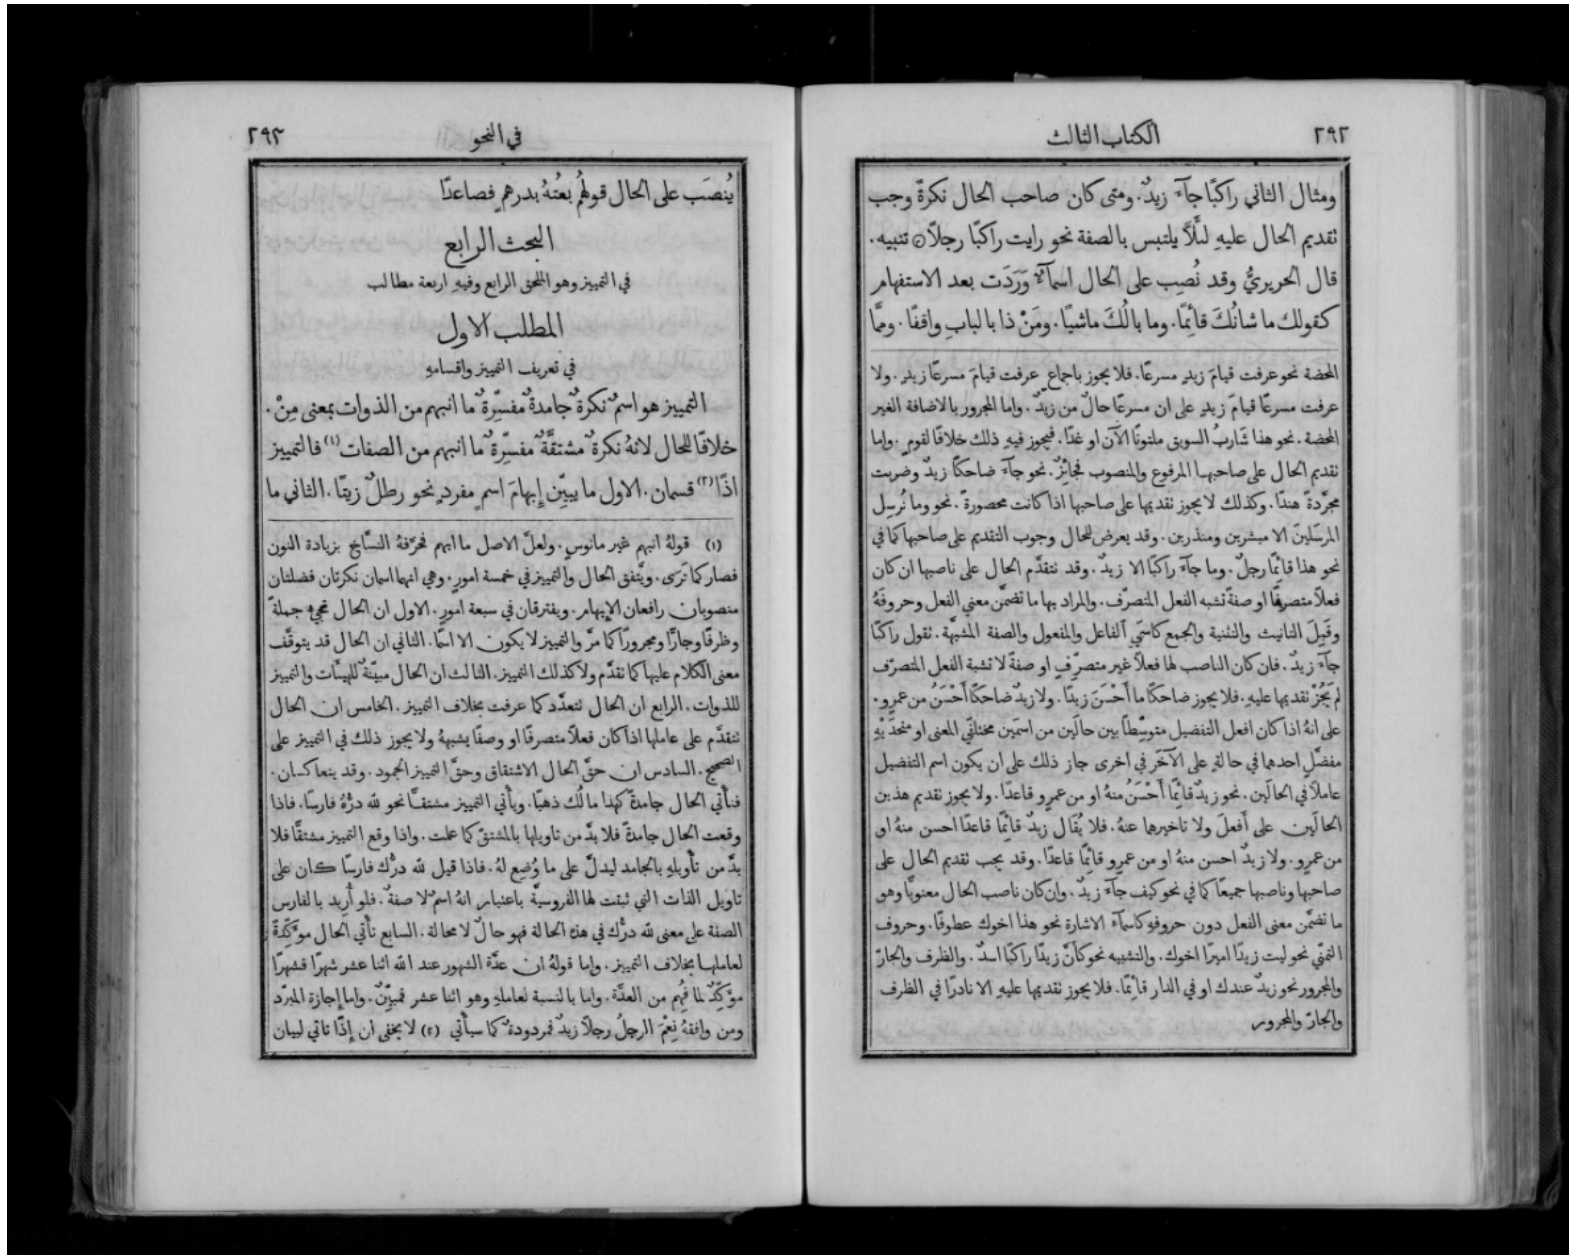 ٢٩٢
الكتاب الثالث
ومثال الثاني راكبًا جآءَ زيدٌ. ومتى كان صاحب الحال نكرةً وجب
تقديم الحال عليهِ لئَلَّا يلتبس بالصفة نحو رايت راكبًا رجلًا ۞ تنبيه.
قال الحريريُّ وقد نُصِب على الحال اسمآءٌ وَرَدَت بعد الاستفهام
كقولك ما شانُكَ قائِمًا. وما بالُكَ ماشيًا. ومَنْ ذا بالبابِ واقفًا. وممَّا
المحضة نحو عرفت قيامَ زيدٍ مسرعًا. فلا يجوز باجماعٍ عرفت قيامَ مسرعًا زيدٍ. ولا
عرفت مسرعًا قيامَ زيدٍ على ان مسرعًا حالٌ من زيدٌ. واما المجرور بالاضافة الغير
المحضة. نحو هذا شَاربُ السويق ملتوتًا الآنَ او غدًا. فيجوز فيهِ ذلك خلافًا لقومٍ. واما
تقديم الحال على صاحبها المرفوع والمنصوب فجائِزٌ. نحو جآءَ ضاحكًا زيدٌ وضربت
مجرَّدةً هندًا. وكذلك لا يجوز تقديمها على صاحبها اذا كانت محصورةً. نحو وما نُرسِل
المرسَلينَ الا مبشرين ومنذرين. وقد يعرض للحال وجوب التقديم على صاحبها كما في
نحو هذا قائِمًا رجلٌ. وما جآءَ راكبًا الا زيدٌ. وقد تتقدَّم الحال على ناصبها ان كان
فعلًا متصرِفًا او صفةً تشبه الفعل المتصرّف. والمراد بها ما تضمَّن معنى الفعل وحروفَهُ
وقَبِلَ التانيث والتثنية والجمع كاسمَي الفاعل والمفعول والصفة المشبَّهة. تقول راكبًا
جآءَ زيدٌ. فان كان الناصب لها فعلًا غير متصرِّفٍ او صفةً لا تشبه الفعل المتصرّف
لم يَجُزْ تقديمها عليهِ. فلا يجوز ضاحكًا ما أَحْسَنَ زيدًا. ولا زيدٌ ضاحكًا أَحْسَنُ من عمرٍو.
على انهُ اذا كان افعل التفضيل متوسِّطًا بين حالَين من اسمَين مختلفَي المعنى او متحدَيْهِ
مفضَّلٍ احدهما في حالةٍ على الآخَر في اخرى جاز ذلك على ان يكون اسم التفضيل
عاملًا في الحالَين. نحو زيدٌ قائِمًا أَحْسَنُ منهُ او من عمرٍو قاعدًا. ولا يجوز تقديم هذين
الحالَين على أَفعلَ ولا تاخيرهما عنهُ. فلا يُقَال زيدٌ قائِمًا قاعدًا احسن منهُ او
من عمرٍو. ولا زيدٌ احسن منهُ او من عمرٍو قائِمًا قاعدًا. وقد يجب تقديم الحال على
صاحبها وناصبها جميعًا كما في نحو كيف جآءَ زيدٌ. وان كان ناصب الحال معنويًّا وهو
ما تضمَّن معنى الفعل دون حروفهِ كاسمآءِ الاشارة نحو هذا اخوك عطوفًا. وحروف
التمنّي نحو ليت زيدًا اميرًا اخوك. والتشبيه نحو كأَنَّ زيدًا راكبًا اسدٌ. والظرف والجارّ
والمجرور نحو زيدٌ عندك او في الدار قائِمًا. فلا يجوز تقديمها عليهِ الا نادرًا في الظرف
والجارّ والمجرور
٢٩٣
في النحو
يُنصَب على الحال قولهُم بعتُهُ بدرهمٍ فصاعدًا
البحث الرابع
في التمييز وهو الملحق الرابع وفيهِ اربعة مطالب
المطلب الاول
في تعريف التمييز واقسامهِ
التمييز هو اسمٌ نكرةٌ جامدةٌ مفسِّرةٌ ما انبهم من الذوات بمعنى مِنْ.
خلافًا للحال لانهُ نكرةٌ مشتقَّةٌ مفسِّرةٌ ما انبهم من الصفات (١) فالتمييز
اذًا (٢) قسمان. الاول ما يبيِّن إِبهامَ اسمٍ مفردٍ نحو رطلٌ زيتًا. الثاني ما
(١) قولهُ انبهم غير مانوسٍ. ولعلَّ الاصل ما ابهم فحرَّفهُ النسَّاخ بزيادة النون
فصار كما تَرَى. ويتَّفق الحال والتمييز في خمسة امورٍ. وهي انهما اسمان نكرتان فضلتان
منصوبان رافعان الإِبهام. ويفترقان في سبعة امورٍ. الاول ان الحال تجيءُ جملةً
وظرفًا وجارًّا ومجرورًا كما مرَّ والتمييز لا يكون الا اسمًا. الثاني ان الحال قد يتوقَّف
معنى الكلام عليها كما تقدَّم ولا كذلك التمييز. الثالث ان الحال مبيِّنةٌ للهيئَات والتمييز
للذوات. الرابع ان الحال تتعدَّد كما عرفت بخلاف التمييز. الخامس ان الحال
تتقدَّم على عاملها اذا كان فعلًا متصرفًا او وصفًا يشبههُ ولا يجوز ذلك في التمييز على
الصحيح. السادس ان حقَّ الحال الاشتقاق وحقَّ التمييز الجمود. وقد يتعاكسان.
فتأتي الحال جامدةً كهذا مالُك ذهبًا. ويأتي التمييز مشتقًّا نحو لله درُّهُ فارسًا. فاذا
وقعت الحال جامدةً فلا بدَّ من تاويلها بالمشتقّ كما علمت. واذا وقع التمييز مشتقًّا فلا
بدَّ من تأويلهِ بالجامد ليدلَّ على ما وُضِع لهُ. فاذا قيل لله درُّك فارسًا كان على
تاويل الذات التي ثبتت لها الفروسيَّة باعتبار انهُ اسمٌ لا صفةٌ. فلو أُرِيد بالفارس
الصفة على معنى لله درُّك في هذه الحالة فهو حالٌ لا محالة. السابع تأتي الحال موَكِّدةً
لعاملها بخلاف التمييز. واما قولهُ ان عدَّة الشهور عند الله اثنا عشر شهرًا فشهرًا
موَكِّدٌ لما فُهِم من العدَّة. واما بالنسبة لعاملهِ وهو اثنا عشر فمبيِّنٌ. واما إجازة المبرّد
ومن وافقهُ نِعْمَ الرجلُ رجلًا زيدٌ فمردودةٌ كما سيأتي (٢) لا يخفى ان إِذًا تاتي لبيان